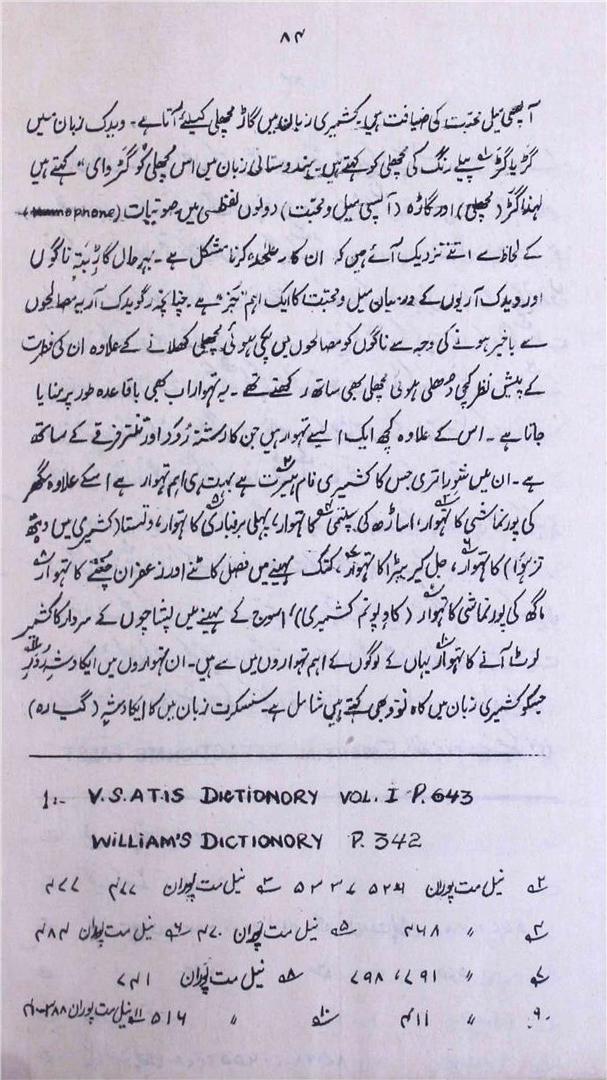 ۸۴
آپسی میل محبت کی ضیافت ہیں۔ کشمیری زبان میں گاڑ مچھلی کیلئے آتا ہے۔ ویدک زبان میں
گڑ یا گڑ پیلے رنگ کی مچھلی کو کہتے ہیں۔ ہندوستانی زبان میں اس مچھلی کو گڑوای" کہتے ہیں
لہذا گڑ (مچھلی) اور گاڑہ (آپسی میل و محبت) دونوں لفظ صوتیات (Homophone)
کے لحاظ سے اتنے نزدیک آئے ہیں کہ ان کا علٰحدہ کرنا مشکل ہے۔ بہرحال گاڑ بتہ ناگوں
اور ویدک آریوں کے درمیان میل و محبت کا ایک اہم جز ہے۔ چنانچہ گو ویدک آریہ مصالحوں
سے باخبر ہونے کی وجہ سے ناگوں کو مصالحوں میں پکی ہوئی مچھلی کھلانے کے علاوہ ان کی فطرت
کے پیش نظر کچی دُھلی ہوئی مچھلی بھی ساتھ رکھتے تھے۔ یہ تہوار اب بھی باقاعدہ طور پر منایا
جاتا ہے۔ اس کے علاوہ کچھ ایک ایسے تہوار ہیں جن کا رشتہ رُدر اور تنتر فرقے کے ساتھ
ہے۔ ان میں شوراتری جس کا کشمیری نام ہیرت ہے بہت ہی اہم تہوار ہے۲ اسکے علاوہ گھر
کی پورنماشی کا تہوار۳، اساڑھ کی سپتمی۴ کا تہوار، پہلی برفباری۵ کا تہوار، وتستا (کشمیری میں ویتھ
تروُا) کا تہوار۶، کتک مہینے میں فصل کاٹنے اور زعفران چکھنے کا تہوار۸
ماگھ کی پورنماشی کا تہوار۹ (کاو پونم کشمیری)، اسوج کے مہینے میں پشاچوں کے سردار کا کشمیر
لوٹ آنے کا تہوار۱۰ یہاں کے لوگوں کے اہم تہواروں میں سے ہیں۔ ان تہواروں میں ایکادشہ رُدر۱۱
جسکو کشمیری زبان میں کاہ نودھی کہتے ہیں شامل ہے سنسکرت زبان میں کا ایکادشہ (گیارہ)
1:- V.S.ATIS DICTIONORY VOL. I P. 643
WILLIAM'S DICTIONORY P. 342
۲؎ نیل مت پوران ۵۲۴ ۵۳۳۷ ۳؎ نیل مت پوران ۶۷۷ ۴۷۷
۴؎ " ۴۶۸ ۵؎ نیل مت پوران ۴۷۰ ۶؎ نیل مت پوران ۴۸۴
۷؎ " ۷۹۱، ۷۹۸ ۸؎ نیل مت پوران ۷۴۱
۹؎ " ۴۱۱ ۱۰؎ " ۵۱۶ ۱۱؎ نیل مت پوران